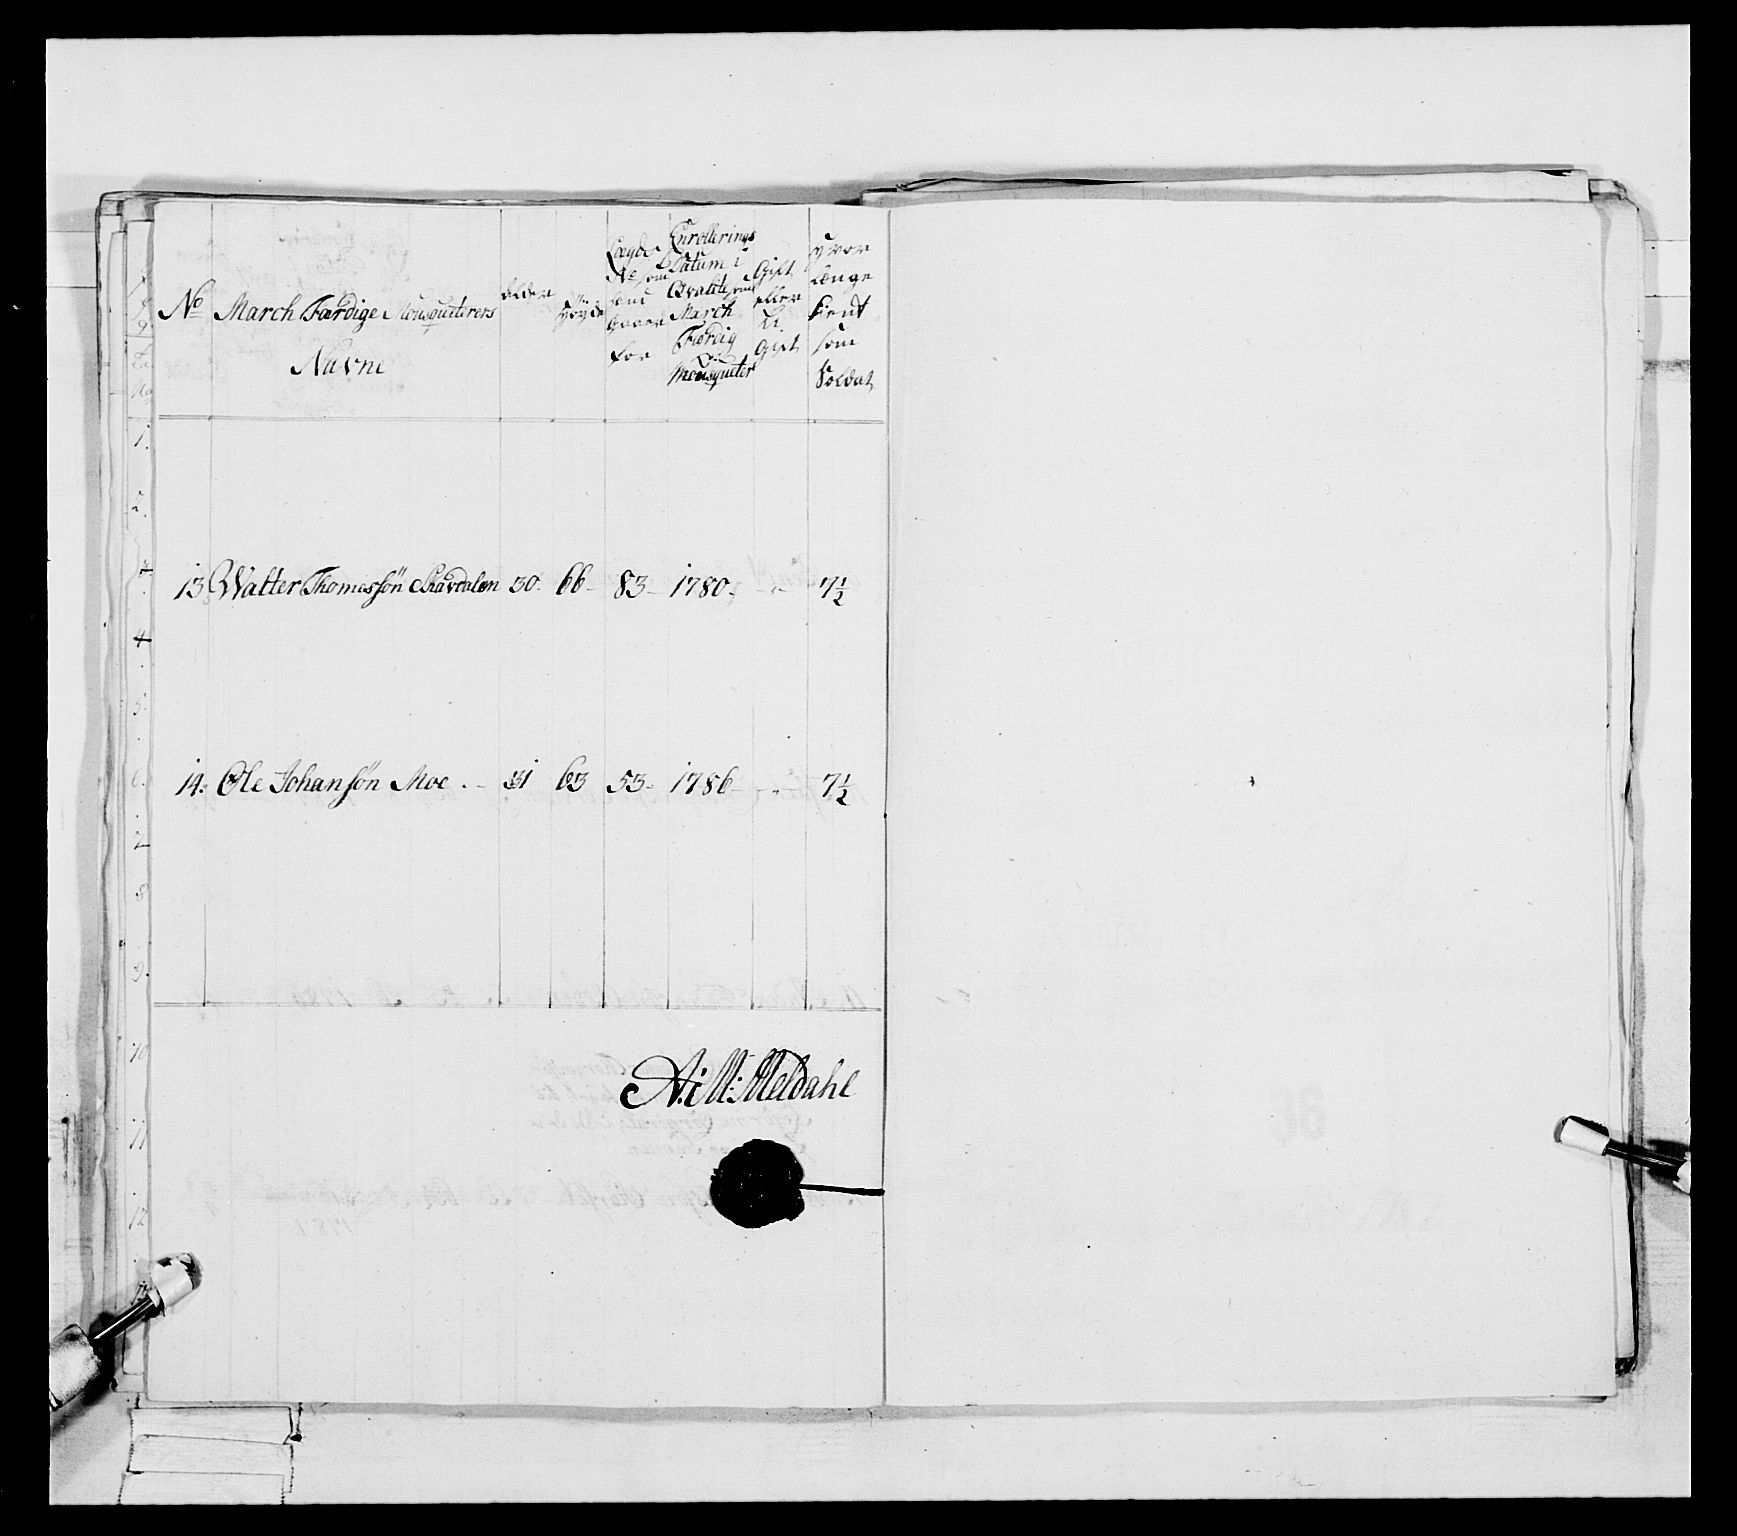 No
March Færdige Mousqueterers
Navne
Alder
Høyde
Lægds
No som
hand
staaer
for
Enrollerings
Datum i
Qvalite som
March
Færdig
Mousqueter
Gift
eller
U
Gift
Hvor
længe
tient
som
Soldat
13 Walter Thomassøn Skavdalen 30. 66 83 1780. - " - 7 1/2
14. Ole Johansøn Moe . - 31 63 53. 1786 - " - 7 1/2
A: M: Meldahl
1.
2.
4.
5.
6.
7
8
9.
10
11
12